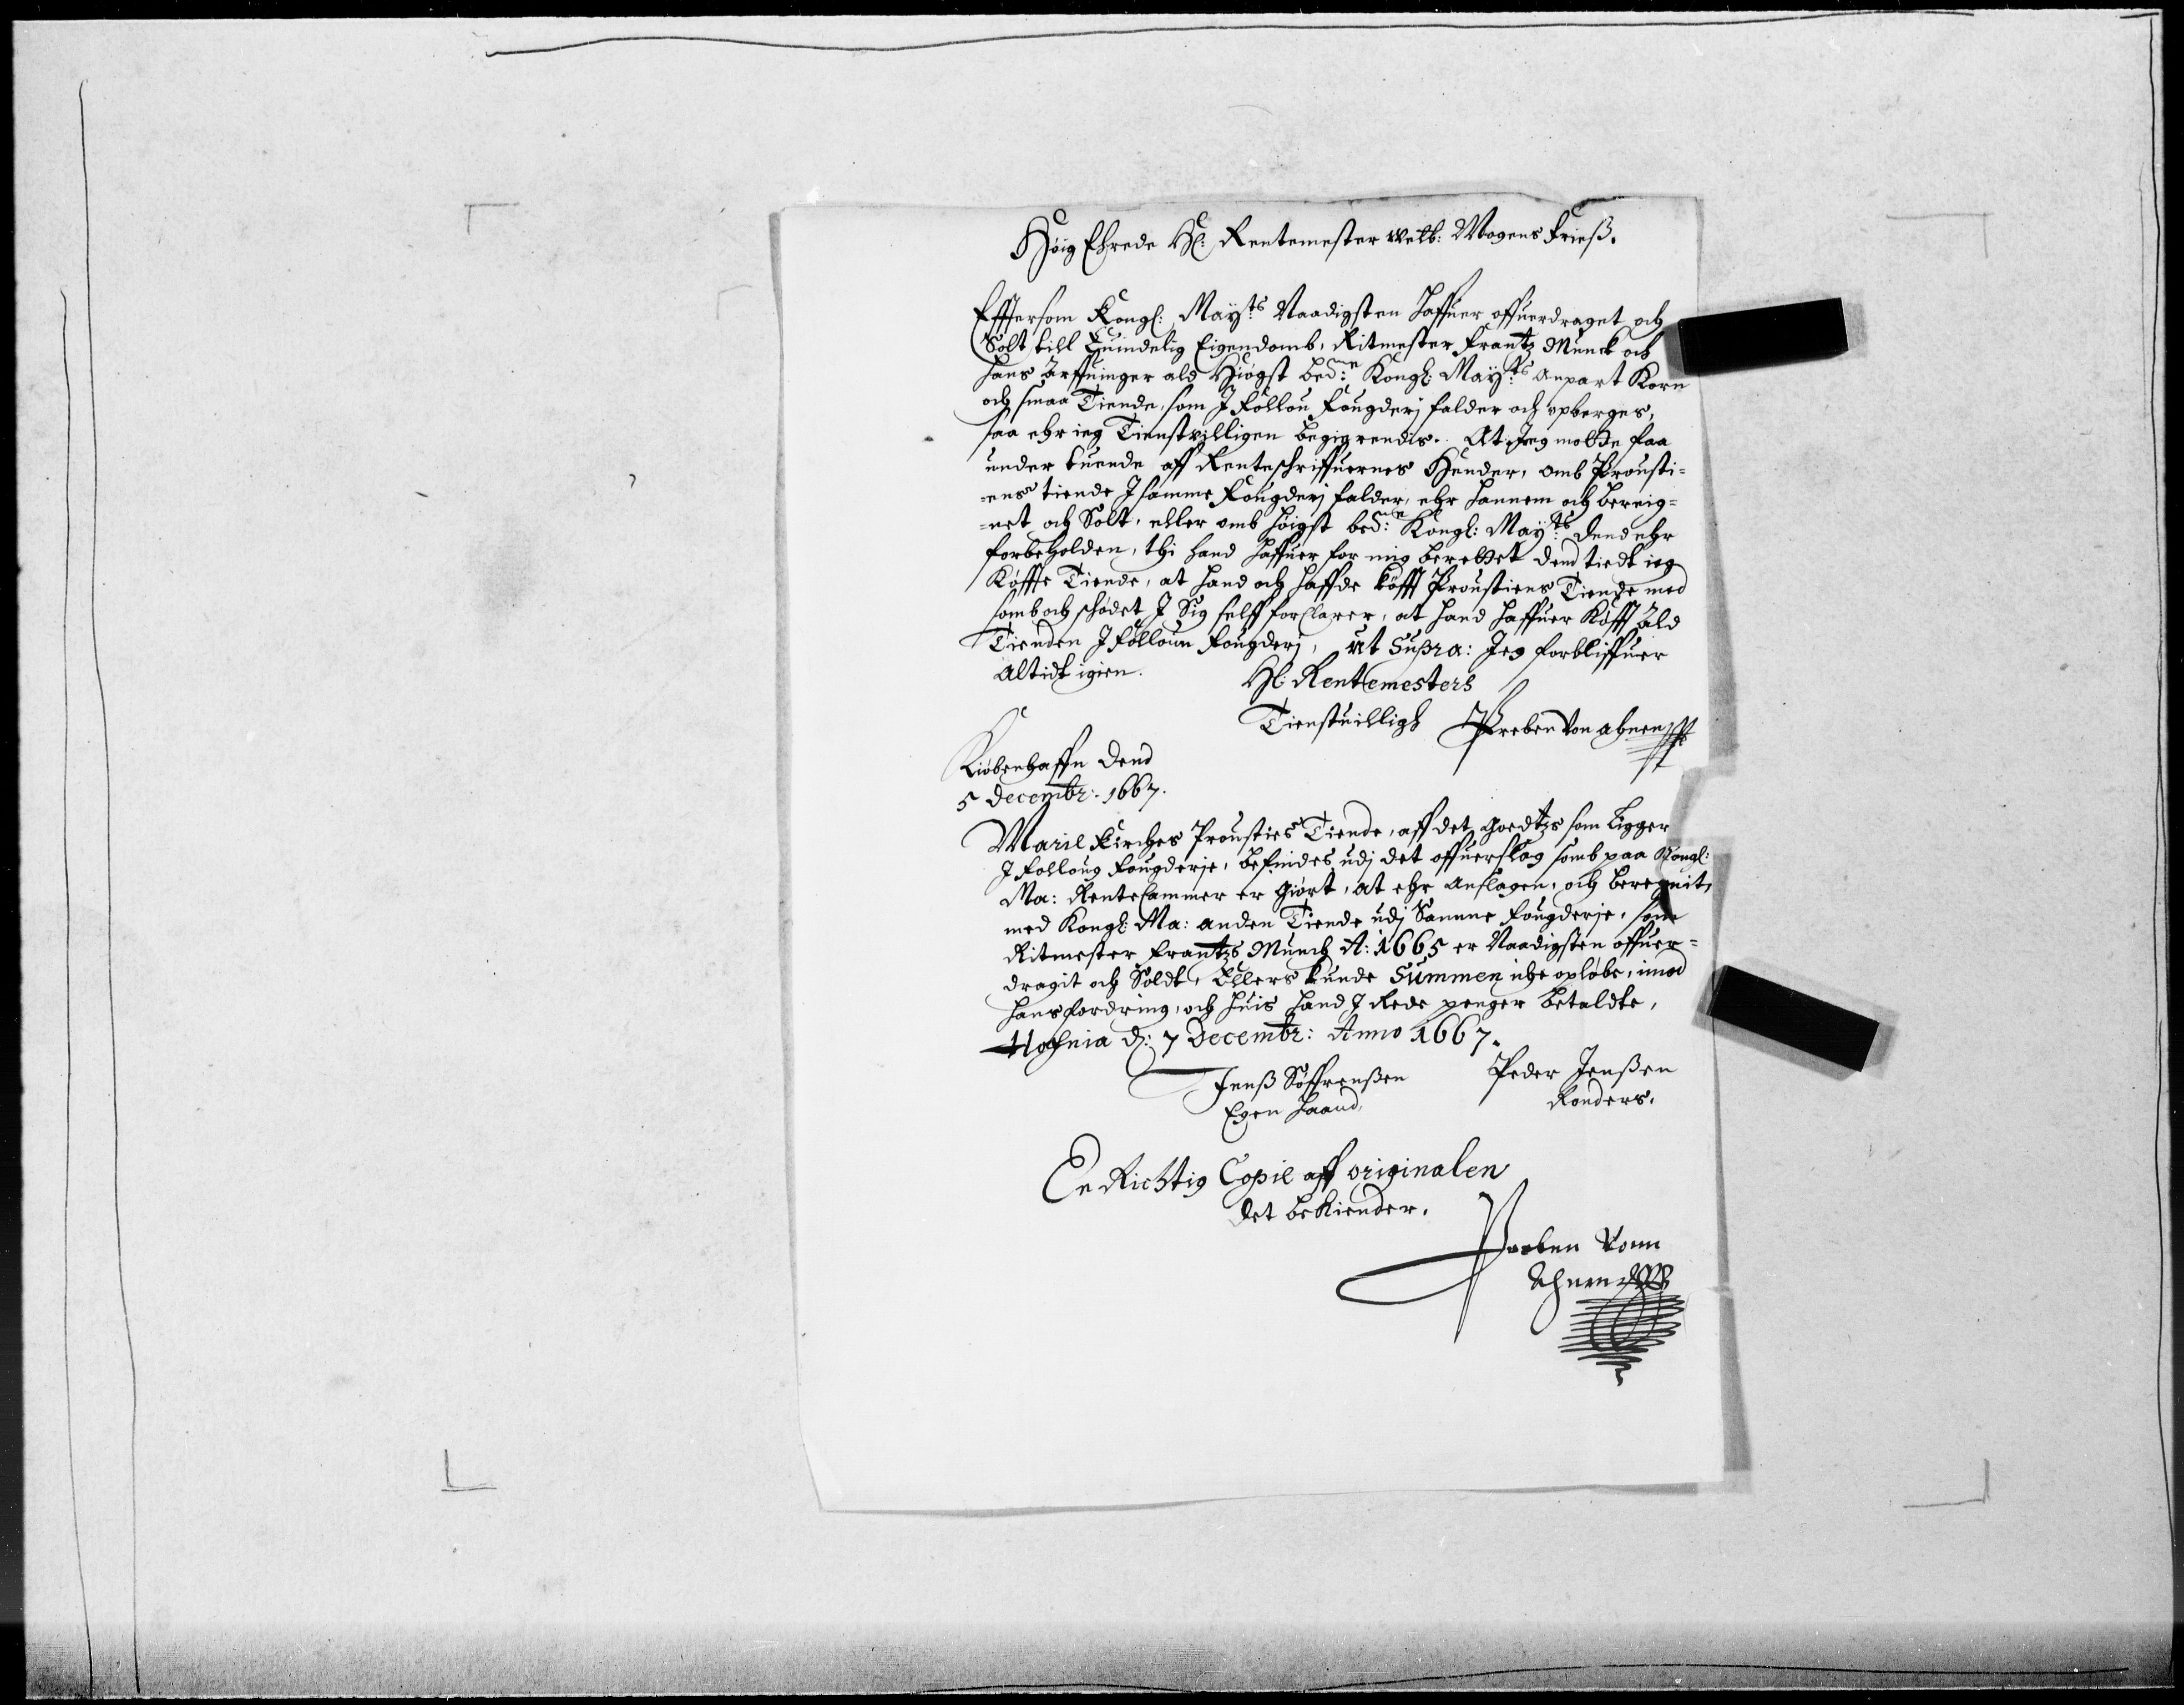 Høig Ehrede Hl: Rentemester velb: Mogens Frieß.
Efftersom Kongl: May:ts Naadigsten haffuer offuerdraget och
Solt till Euindelig Eigendomb, Ritmester Frantz Munck och
hans Arffuinger ald Høigst bed:te Kongl: May:ts anpart Korn
och smaa Tiende, som J Follou Fougderj falder och opberges,
saa ehr ieg Tienstvilligen begierendis. At Jeg motte faa
under tuende aff Renteschriffuernes Hender, omb Prousti-
-ens tiende J samme Fougderj falder, ehr hannem och bereig-
-net och Solt, eller omb høigst bed:te Kongl: May:ts dend ehr
forbeholden, thi hand haffuer for mig berettet dend tiedt ieg
Køffte Tiende, at hand och haffde køfft Proustiens Tiende med
somb och schødet J Sig selff forklarer, at hand haffuer Køfft ald
Tienden J Follown Fougderj, ut Supra: Jeg forbliffuer
Altidt igien.
Hl: Rentemesters
Tienstuilligh Preben von Ahnen
Kiøbenhaffn dend
5 Decembr: 1667.
Marie Kirches Prousties Tiende, aff det Goedtzs som ligger
J Folloug Fougderje, befindes udj det offuerslag somb paa Kongl:
Ma: RenteCammer er giort, at ehr anslagen, och beregnit,
med Kongl: Ma: anden Tiende udj Samme Fougderje, som
Ritmester Frantzs Munch A: 1665 er Naadigsten offuer-
dragit och Soldt, Ellers kunde Summen iche opløbe, imod
hans fordring, och huis hand J Rede penger betaldte,
Hafnia d: 7 Decembr: Anno 1667.
Jenß Søffrenßen Peder Jenßen
Egen haand, Randers.
En Richtig Copie aff originalen
det bekiender.
Preben vonn
Ahnen